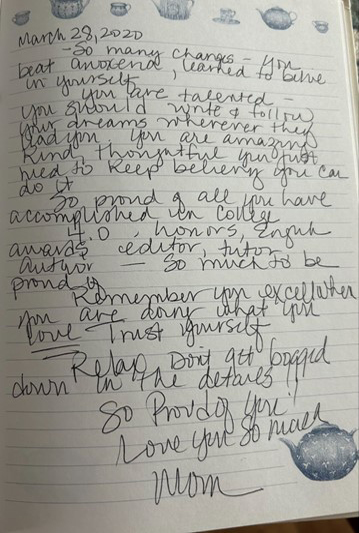 March 28, 2020
-So many changes - You
beat anorexia, learned to belive
in yourself
You are talented -
You should write & follow
your dreams wherever they
lead you. You are amazing
Kind, thoughtful you just
need to keep believing you can
do it
So proud of all you have
accomplished in College
4.0, honors, English
awards editor, tutor
Author — So much to be
proud of
Remember you excel when
you are doing what you
Love Trust yourself
Relax Don't get bogged
down in the details!!
So Proud of You!
Love you so much
Mom